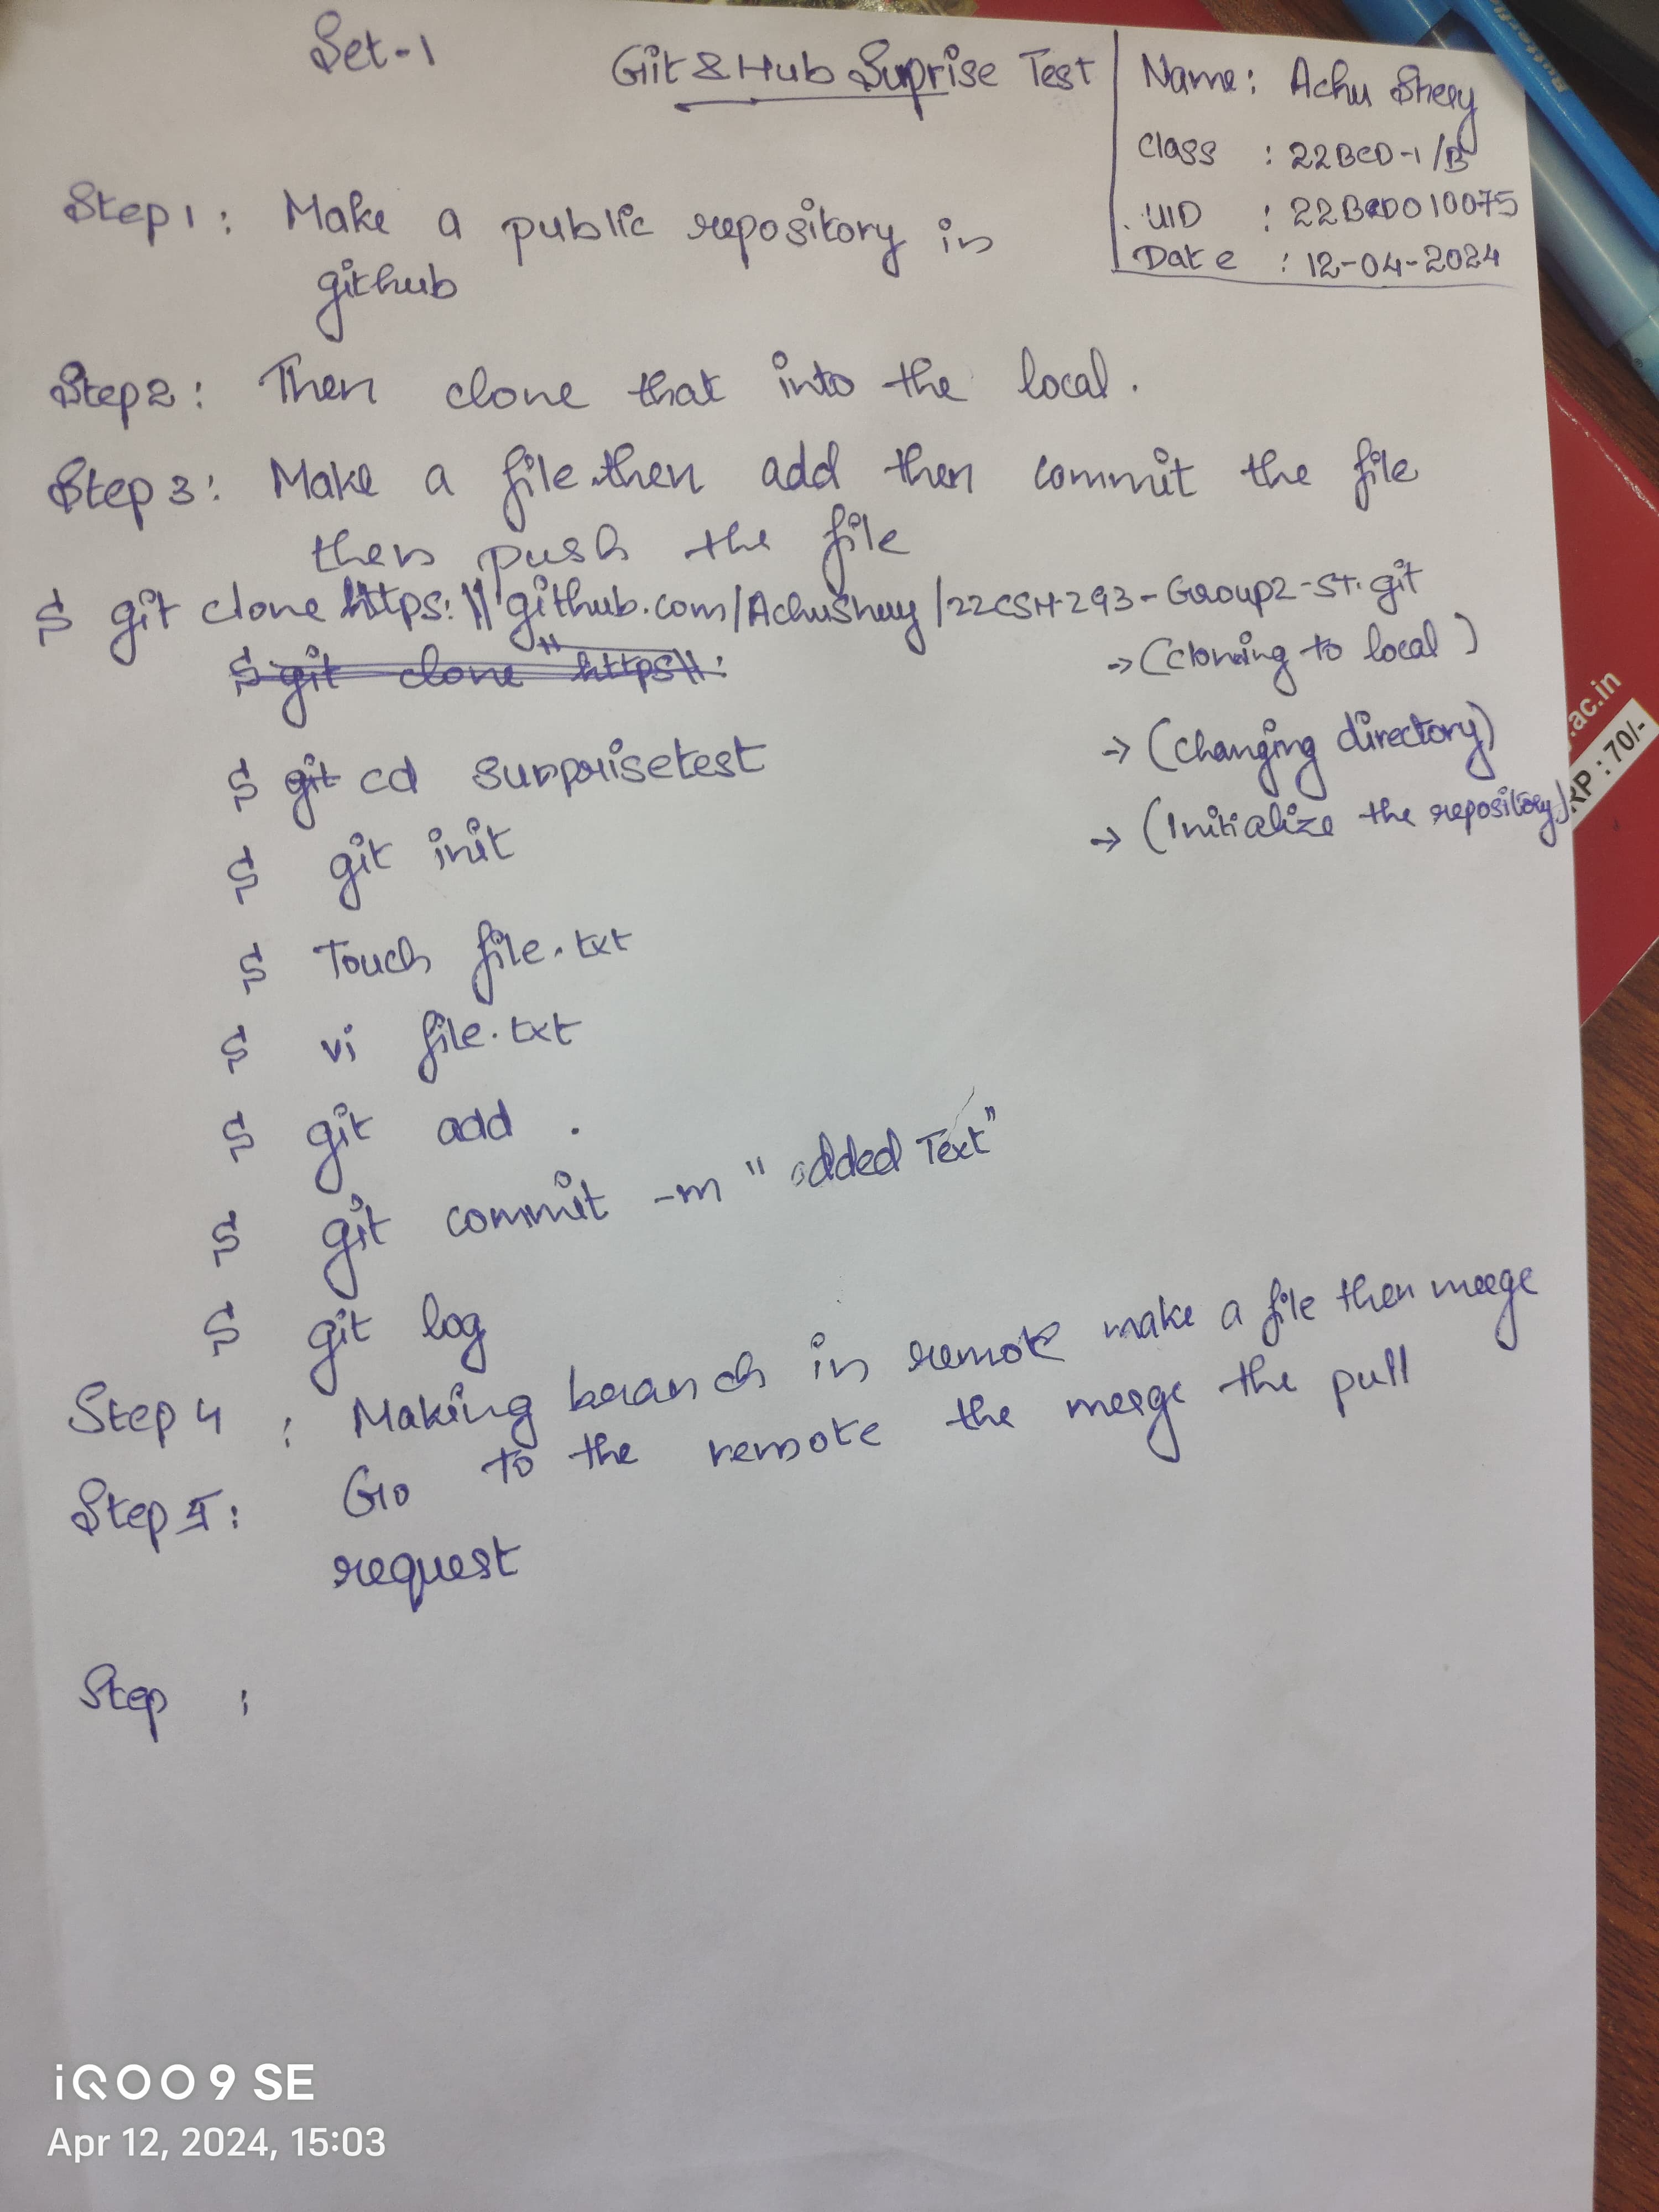 Set-1
Git & Hub Suprise Test
Name: Achu Shery
Class : 22BCD-1/B
UID : 22BCD010075
Date : 12-04-2024
Step1: Make a public repository in
github
Step2: Then clone that into the local.
Step3: Make a file then add then commit the file
then push the file
$ git clone https:\\github.com/AchuShery/22CSH-293-Group2-ST.git
$ git clone "https\\:
→ (cloning to local)
$ git cd surprisetest → (changing directory)
$ git init → (Initialize the repository)
$ Touch file.txt
$ vi file.txt
$ git add .
$ git commit -m "added Text"
$ git log
Step 4 : Making branch in remote make a file then merge
Step 5: Go to the remote the merge the pull
request
Step :
.ac.in
RP : 70/-
iQOO 9 SE
Apr 12, 2024, 15:03